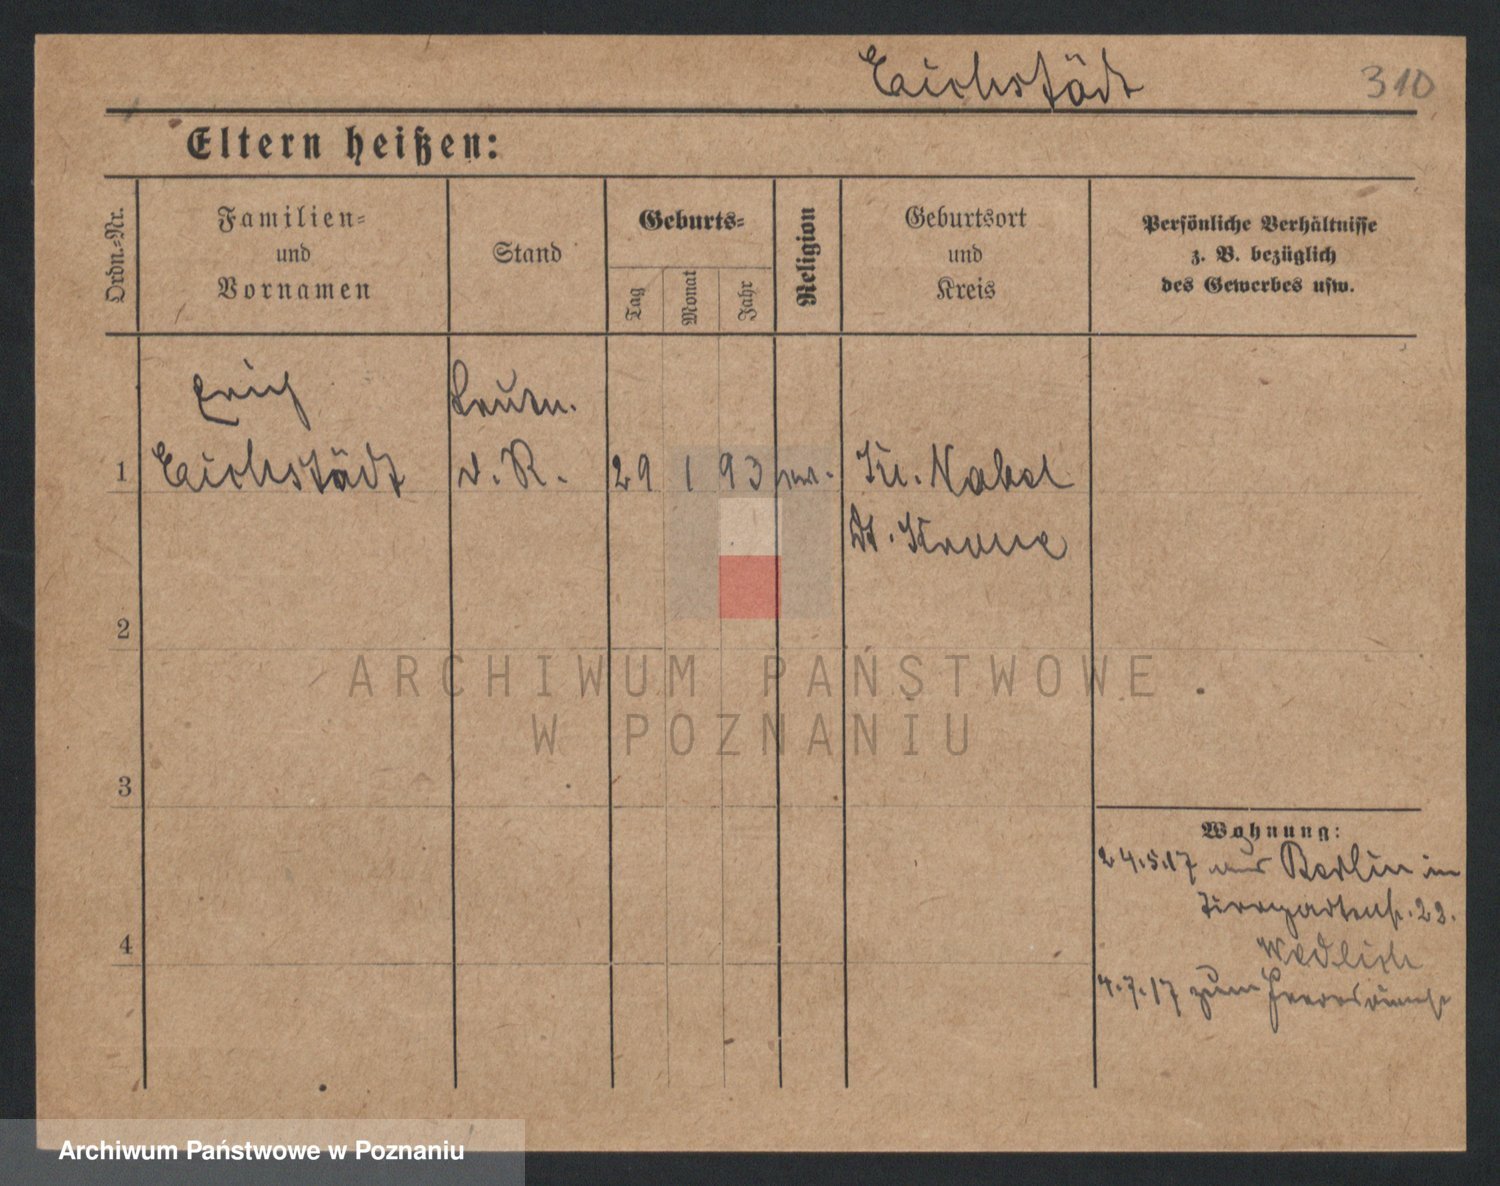 Eichstädt 310
Eltern heißen:
Ordn.=Nr.
Familien=
und
Vornamen
Stand
Geburts=
Tag
Monat
Jahr
Religion
Geburtsort
und
Kreis
Persönliche Verhältnisse
z. B. bezüglich
des Gewerbes usw.
Erich
Leutn.
1 Eichstädt d. R. 29 1 93 Kl. Nakel
Dt. Krone
2
3
4
Wohnung:
24.5.17 aus Berlin in
Tiergartenstr. 22.
4.7.17 zum Heeresdienst
ARCHIWUM PAŃSTWOWE
W POZNANIU
Archiwum Państwowe w Poznaniu